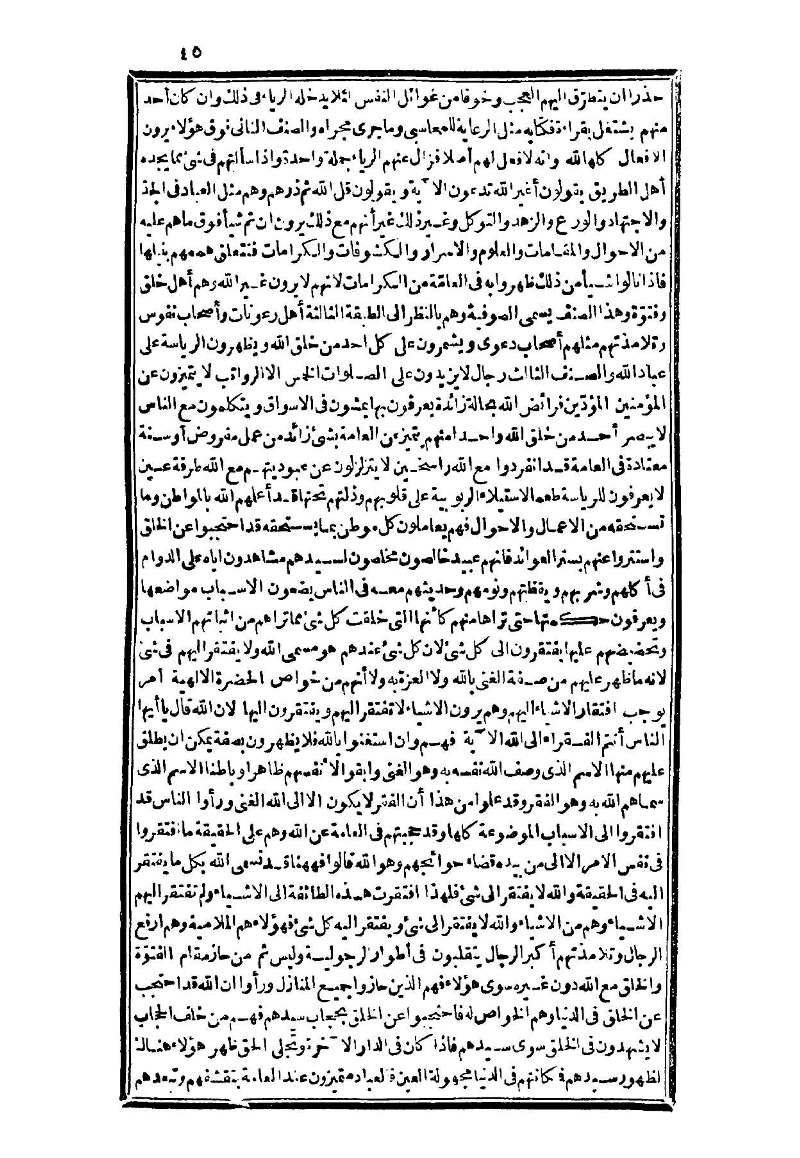 ٤٥
حذرا ان يتطرق اليهم العجب وخوفا من غوائل النفس لئلا يدخله الرياء فى ذلك وان كان أحد
منهم يشتغل بقراءة فكتابه مثل الرعاية للمحاسبى وما جرى مجراه والصنف الثانى فوق هؤلاء يرون
الافعال كلها لله وانه لا فعل لهم أصلا فزال عنهم الرياء جملة واحدة واذا سألتهم فى شئ مما يجده
أهل الطريق يقولون أغير الله تدعون الآية ويقولون قل الله ثم ذرهم وهم مثل العباد فى الجد
والاجتهاد والورع والزهد والتوكل وغير ذلك غير أنهم مع ذلك يرون ان ثم شيأ فوق ماهم عليه
من الاحوال والمقامات والعلوم والاسرار والكشوفات والكرامات فتتعلق هممهم بنيلها
فاذا نالوا شيأ من ذلك ظهروا به فى العامة من الكرامات لانهم لا يرون غير الله وهم أهل خلق
وفتوة وهذا الصنف يسمى الصوفية وهم بالنظر الى الطبقة الثالثة أهل رعونات وأصحاب نفوس
وتلامذتهم مثلهم أصحاب دعوى ويشمرون على كل احد من خلق الله ويظهرون الرياسة على
عباد الله والصنف الثالث رجال لا يزيدون على الصلوات الخمس الا الرواتب لا يتميزون عن
المؤمنين المؤدين فرائض الله بحالة زائدة يعرفون بها يمشون فى الاسواق ويتكلمون مع الناس
لا يبصر أحد من خلق الله واحدا منهم يتميز عن العامة بشئ زائد من عمل مفروض أو سنة
معتادة فى العامة قد انفردوا مع الله راسخين لا يتزلزلون عن عبوديتهم مع الله طرفة عين
لا يعرفون للرياسة طعما لاستيلاء الربوبية على قلوبهم وذلتهم تحتها قد أعلمهم الله بالمواطن وما
تستحقه من الاعمال والاحوال فهم يعاملون كل موطن بما يستحقه قد احتجبوا عن الخلق
واستتروا عنهم بستر العوائد فانهم عبيد خالصون مخلصون لسيدهم مشاهدون اياه على الدوام
فى أكلهم وشربهم ويقظتهم ونومهم وحديثهم معه فى الناس يضعون الاسباب مواضعها
ويعرفون حكمتها حتى تراهم منهم كأنها التى خلقت كل شئ مما تراهم من اثباتهم الاسباب
وتحضيضهم عليها يفتقرون الى كل شئ لان كل شئ عندهم هو مسمى الله ولا يفتقر اليهم فى شئ
لانه ماظهر عليهم من صفة الغنى بالله ولا العزة به ولا أنهم من خواص الحضرة الالهية أمر
يوجب افتقار الاشياء اليهم وهم يرون الاشياء لا تفتقر اليهم ويفتقرون اليها لان الله قال يا أيها
الناس أنتم الفقراء الى الله الآية فهم وان استغنوا بالله فلا يظهرون بصفة يمكن ان يطلق
عليهم منها الاسم الذى وصف الله نفسه به وهو الغنى وابقوا لانفسهم ظاهرا وباطنا الاسم الذى
سماهم الله به وهو الفقر وقد علموا من هذا أن الفقر لا يكون الا الى الله الغنى ورأوا الناس قد
افتقروا الى الاسباب الموضوعة كلها وقد حجبتهم فى العامة عن الله وهم على الحقيقة ما افتقروا
فى نفس الامر الا الى من بيده قضاء حوائجهم وهو الله قالوا فههنا قد تسمى الله بكل ما يفتقر
اليه فى الحقيقة والله لا يفتقر الى شئ فلهذا افتقرت هذه الطائفة الى الاشياء ولم تفتقر اليهم
الاشياء وهم من الاشياء والله لا يفتقر الى شئ ويفتقر اليه كل شئ فهؤلاء هم الملامية وهم ارفع
الرجال وتلامذتهم أكبر الرجال يتقلبون فى أطوار الرجولية وليس ثم من حاز مقام الفتوة
والخلق مع الله دون غيره سوى هؤلاء فهم الذين حازوا جميع المنازل ورأوا ان الله قد احتجب
عن الخلق فى الدنيا وهم الخواص له فاحتجبوا عن الخلق بحجاب سيدهم فهم من خلف الحجاب
لا يشهدون فى الخلق سوى سيدهم فاذا كان فى الدار الآخرة وتجلى الحق ظهر هؤلاء هناك
لظهور سيدهم فمكانتهم فى الدنيا مجهولة العين فالعباد متميزون عند العامة بتقشفهم وتبعدهم